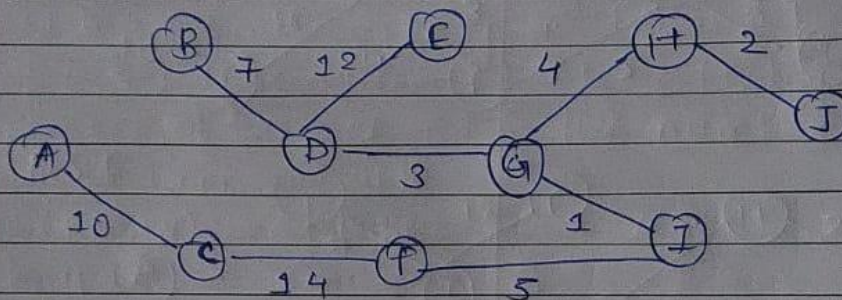 B 7 12 E 4 H 2
J
A D 3 G
10 1 I
C 14 F 5